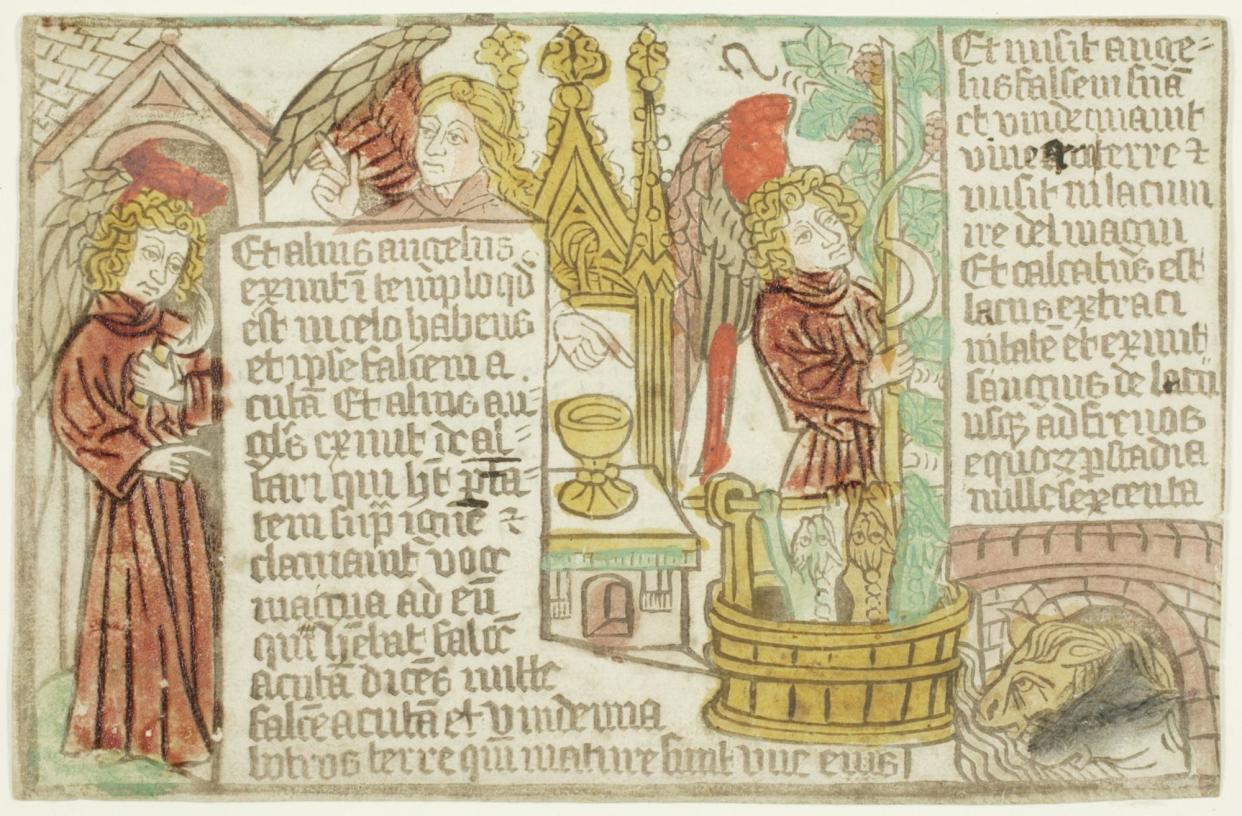 Et alius angelus
exiuit ī templo qd̄
est in celo habens
et ipse falcem a
cutā Et alius an⸗
gls̄ exiuit de al⸗
tari qui hꝫt p̄ta⸗
tem sup̄ igne ⁊
clamauit voce
magna ad eū
qui hēbat falcē
acutā dicēs mitte
falcē acutā et vindemia
botros terre qm̄ mature sunt vue eius
Et misit ange⸗
lus falcem suā
et vindemauit
vineā terre ⁊
misit in lacum
ire dei magni
Et calcatus est
lacus extra ci
uitatē et exiuit
sanguis de lacu
usqꝫ ad frenos
equoꝝ p̱ stadia
mille sexcenta